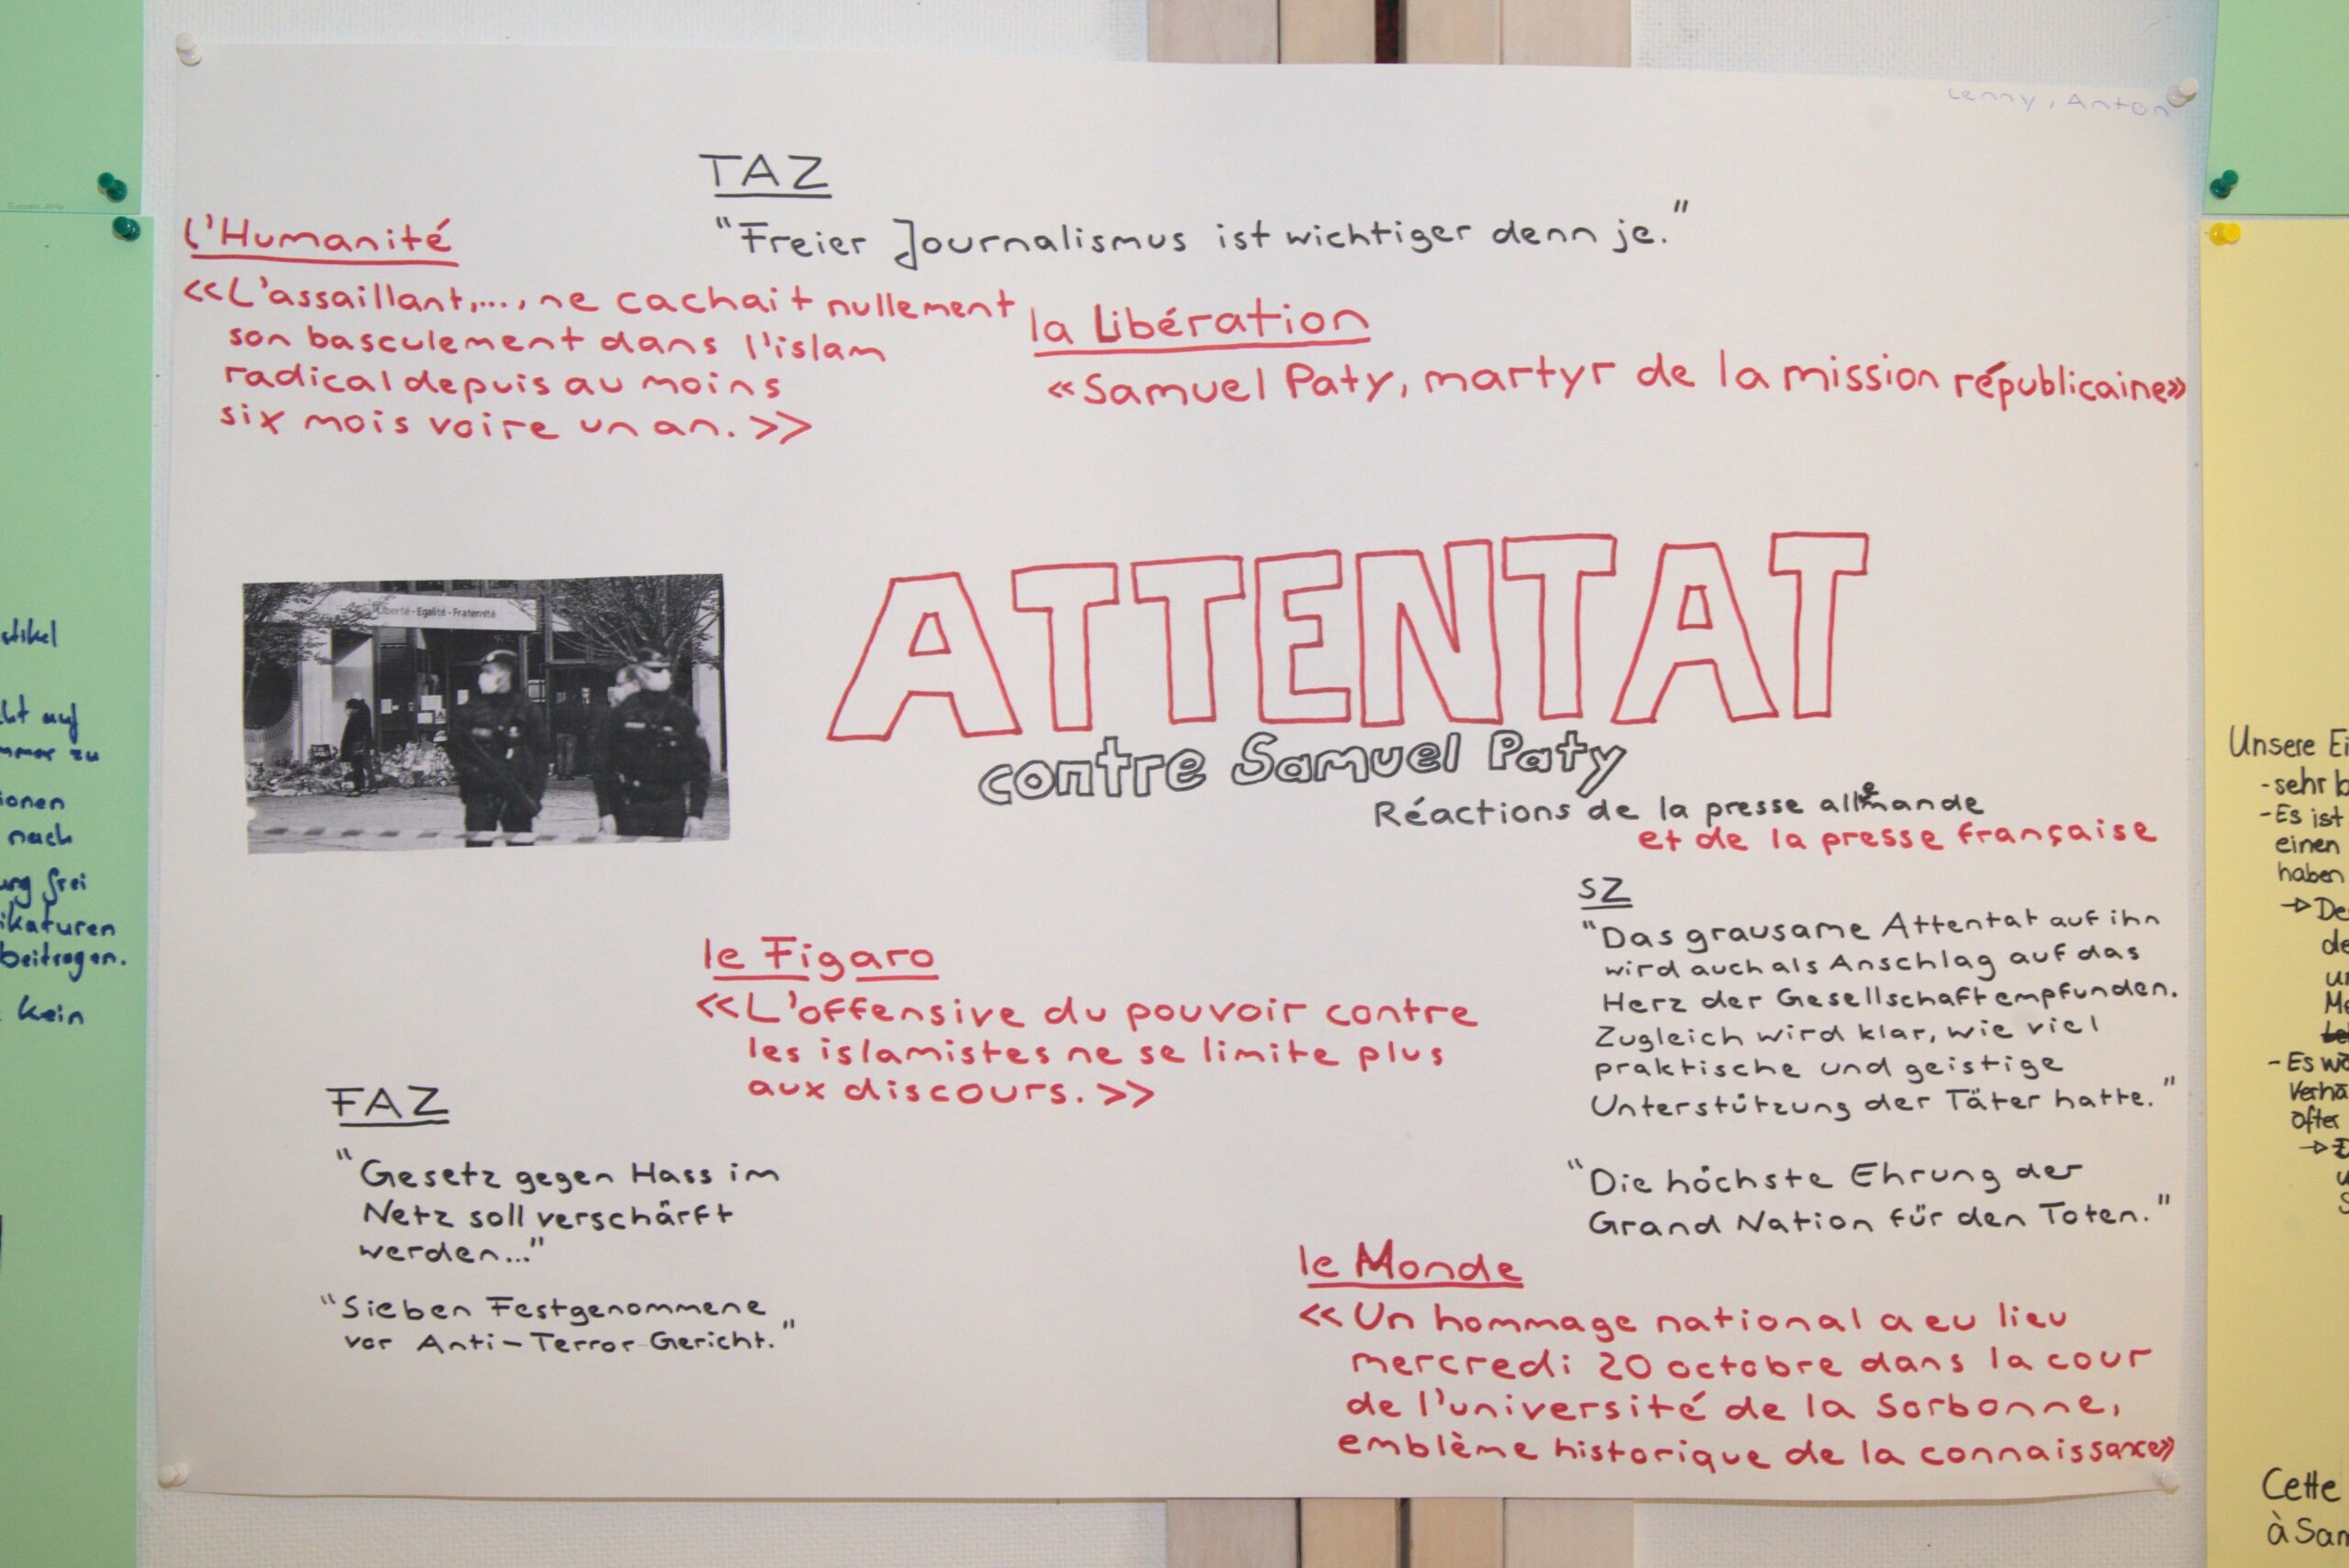 Lenny, Anton
TAZ
"Freier Journalismus ist wichtiger denn je."
l'Humanité
<<L'assaillant,..., ne cachait nullement
son basculement dans l'islam
radical depuis au moins
six mois voire un an.>>
la Libération
«Samuel Paty, martyr de la mission républicaine»
Liberté - Egalité - Fraternité
ATTENTAT
contre Samuel Paty
Réactions de la presse allemande
et de la presse française
SZ
"Das grausame Attentat auf ihn
wird auch als Anschlag auf das
Herz der Gesellschaft empfunden.
Zugleich wird klar, wie viel
praktische und geistige
Unterstützung der Täter hatte."
"Die höchste Ehrung der
Grand Nation für den Toten."
le Figaro
<<L'offensive du pouvoir contre
les islamistes ne se limite plus
aux discours.>>
FAZ
"Gesetz gegen Hass im
Netz soll verschärft
werden..."
"Sieben Festgenommene
vor Anti-Terror-Gericht."
le Monde
<<Un hommage national a eu lieu
mercredi 20 octobre dans la cour
de l'université de la Sorbonne,
emblème historique de la connaissance»
auf
zu
nach
frei
beitragen.
kein
Unsere
- sehr
- Es ist
einen
haben
- Es
öfter
Cette
à